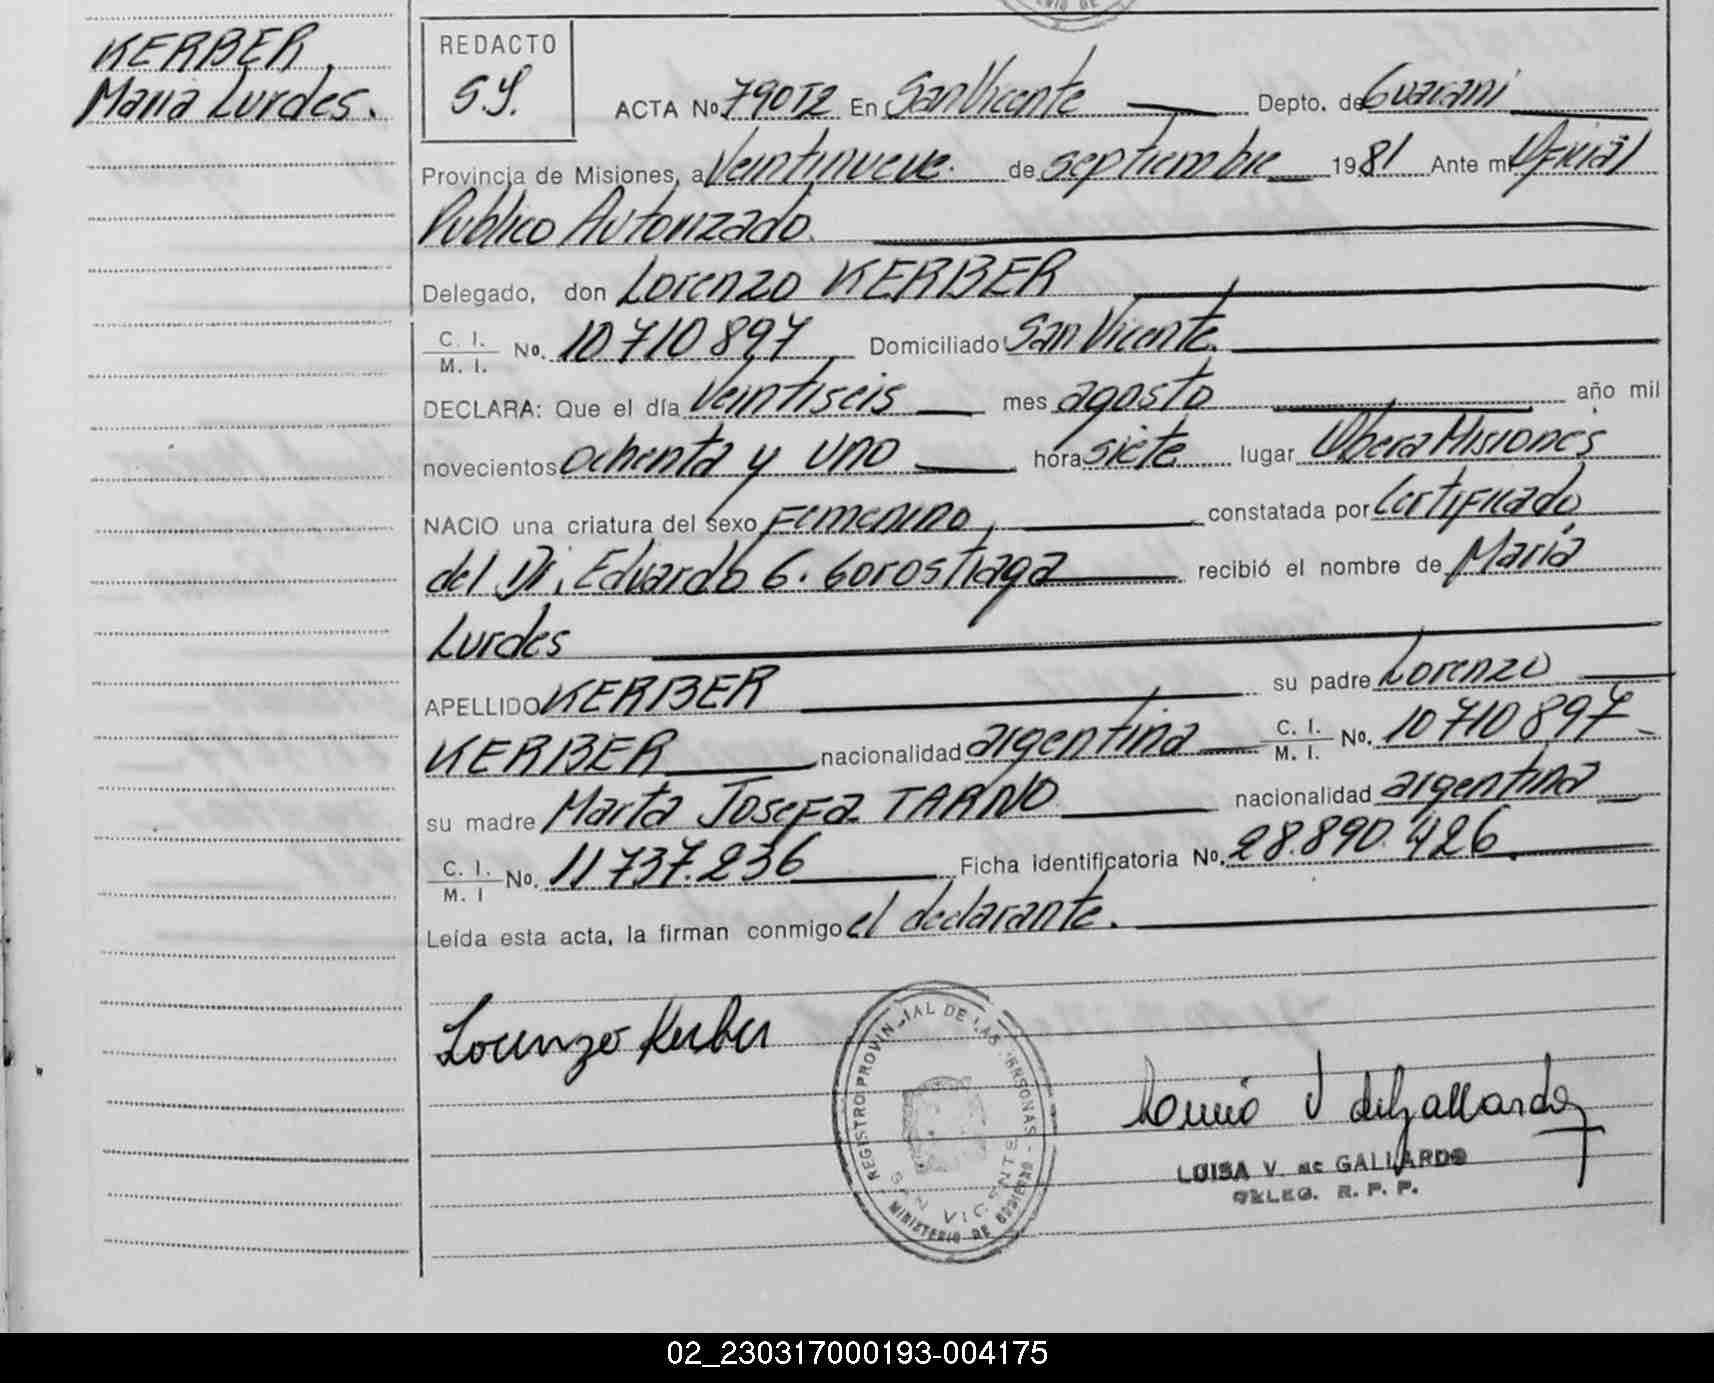 KERBER,
Maria Lurdes.
REDACTO
S.G.
ACTA No. 790T2 En San Vicente Depto. de Guarani
Provincia de Misiones, a Veintinueve. de septiembre 1981 Ante mi Oficial
Publico Autorizado.
Delegado, don Lorenzo KERBER
C. I. M. I. No. 10710897 Domiciliado San Vicente.
DECLARA: Que el día Veintiseis mes agosto año mil
novecientos ochenta y uno hora siete lugar Obera Misiones
NACIO una criatura del sexo Femenino, constatada por Certificado
del Dr. Eduardo G. Gorostiaga recibió el nombre de Maria
Lurdes
APELLIDO KERBER su padre Lorenzo
KERBER nacionalidad argentina C. I. M. I. No. 10710897
su madre Marta Josefa TARNO nacionalidad argentina
C. I. M. I No. 11737.236 Ficha identificatoria No. 28.890.426.
Leída esta acta, la firman conmigo el declarante.
Lorenzo Kerber
REGISTRO PROVINCIAL DE LAS PERSONAS - MINISTERIO DE GOBIERNO
SAN VICENTE
V de Gallardo
LUISA V. de GALLARDO
DELEG. R. P. P.
02_230317000193-004175